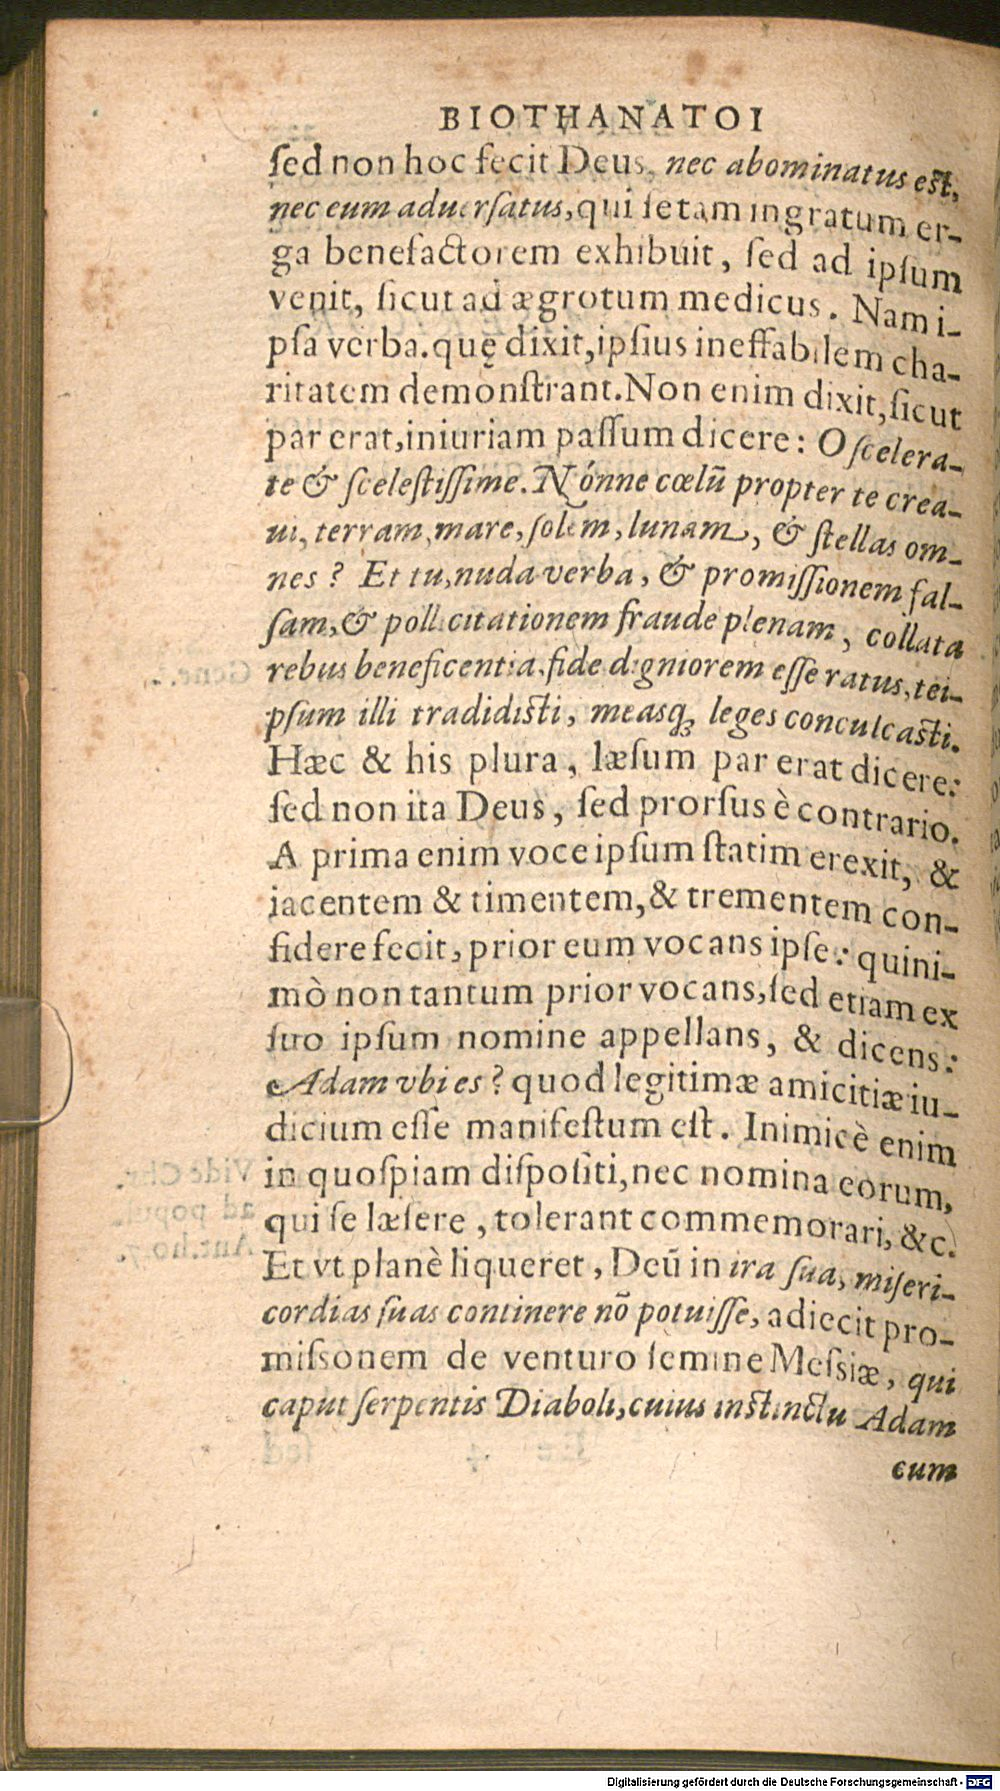 BIOTHANATOI
ſed non hoc fecit Deus, nec abominatus eſt,
nec eum aduerſatus, qui ſe tam ingratum er-
ga benefactorem exhibuit, ſed ad ipſum
venit, ſicut ad ægrotum medicus. Nam i-
pſa verba. quę dixit, ipſius ineffabilem cha-
ritatem demonſtrant. Non enim dixit, ſicut
par erat, iniuriam paſſum dicere: O ſcelera-
te & ſceleſtiſſime. Nónne cœlū propter te crea-
ui, terram, mare, ſolem, lunam, & ſtellas om-
nes? Et tu, nuda verba, & promiſſionem fal-
ſam, & pollicitationem fraude plenam, collata
rebus beneficentia, fide digniorem eſſe ratus, tei-
pſum illi tradidiſti, measq́; leges conculcaſti.
Hæc & his plura, læſum par erat dicere:
ſed non ita Deus, ſed prorſus è contrario.
A prima enim voce ipſum ſtatim erexit, &
iacentem & timentem, & trementem con-
fidere fecit, prior eum vocans ipſe: quini-
mò non tantum prior vocans, ſed etiam ex
ſuo ipſum nomine appellans, & dicens:
Adam vbi es? quod legitimæ amicitiæ iu-
dicium eſſe manifeſtum eſt. Inimicè enim
in quoſpiam diſpoſiti, nec nomina eorum,
qui ſe læſere, tolerant commemorari, &c.
Et vt planè liqueret, Deū in ira ſua, miſeri-
cordias ſuas continere nō potuiſſe, adiecit pro-
miſsonem de venturo ſemine Meſsiæ, qui
caput ſerpentis Diaboli, cuius inſtinctu Adam
cum
Digitalisierung gefördert durch die Deutsche Forschungsgemeinschaft - DFG